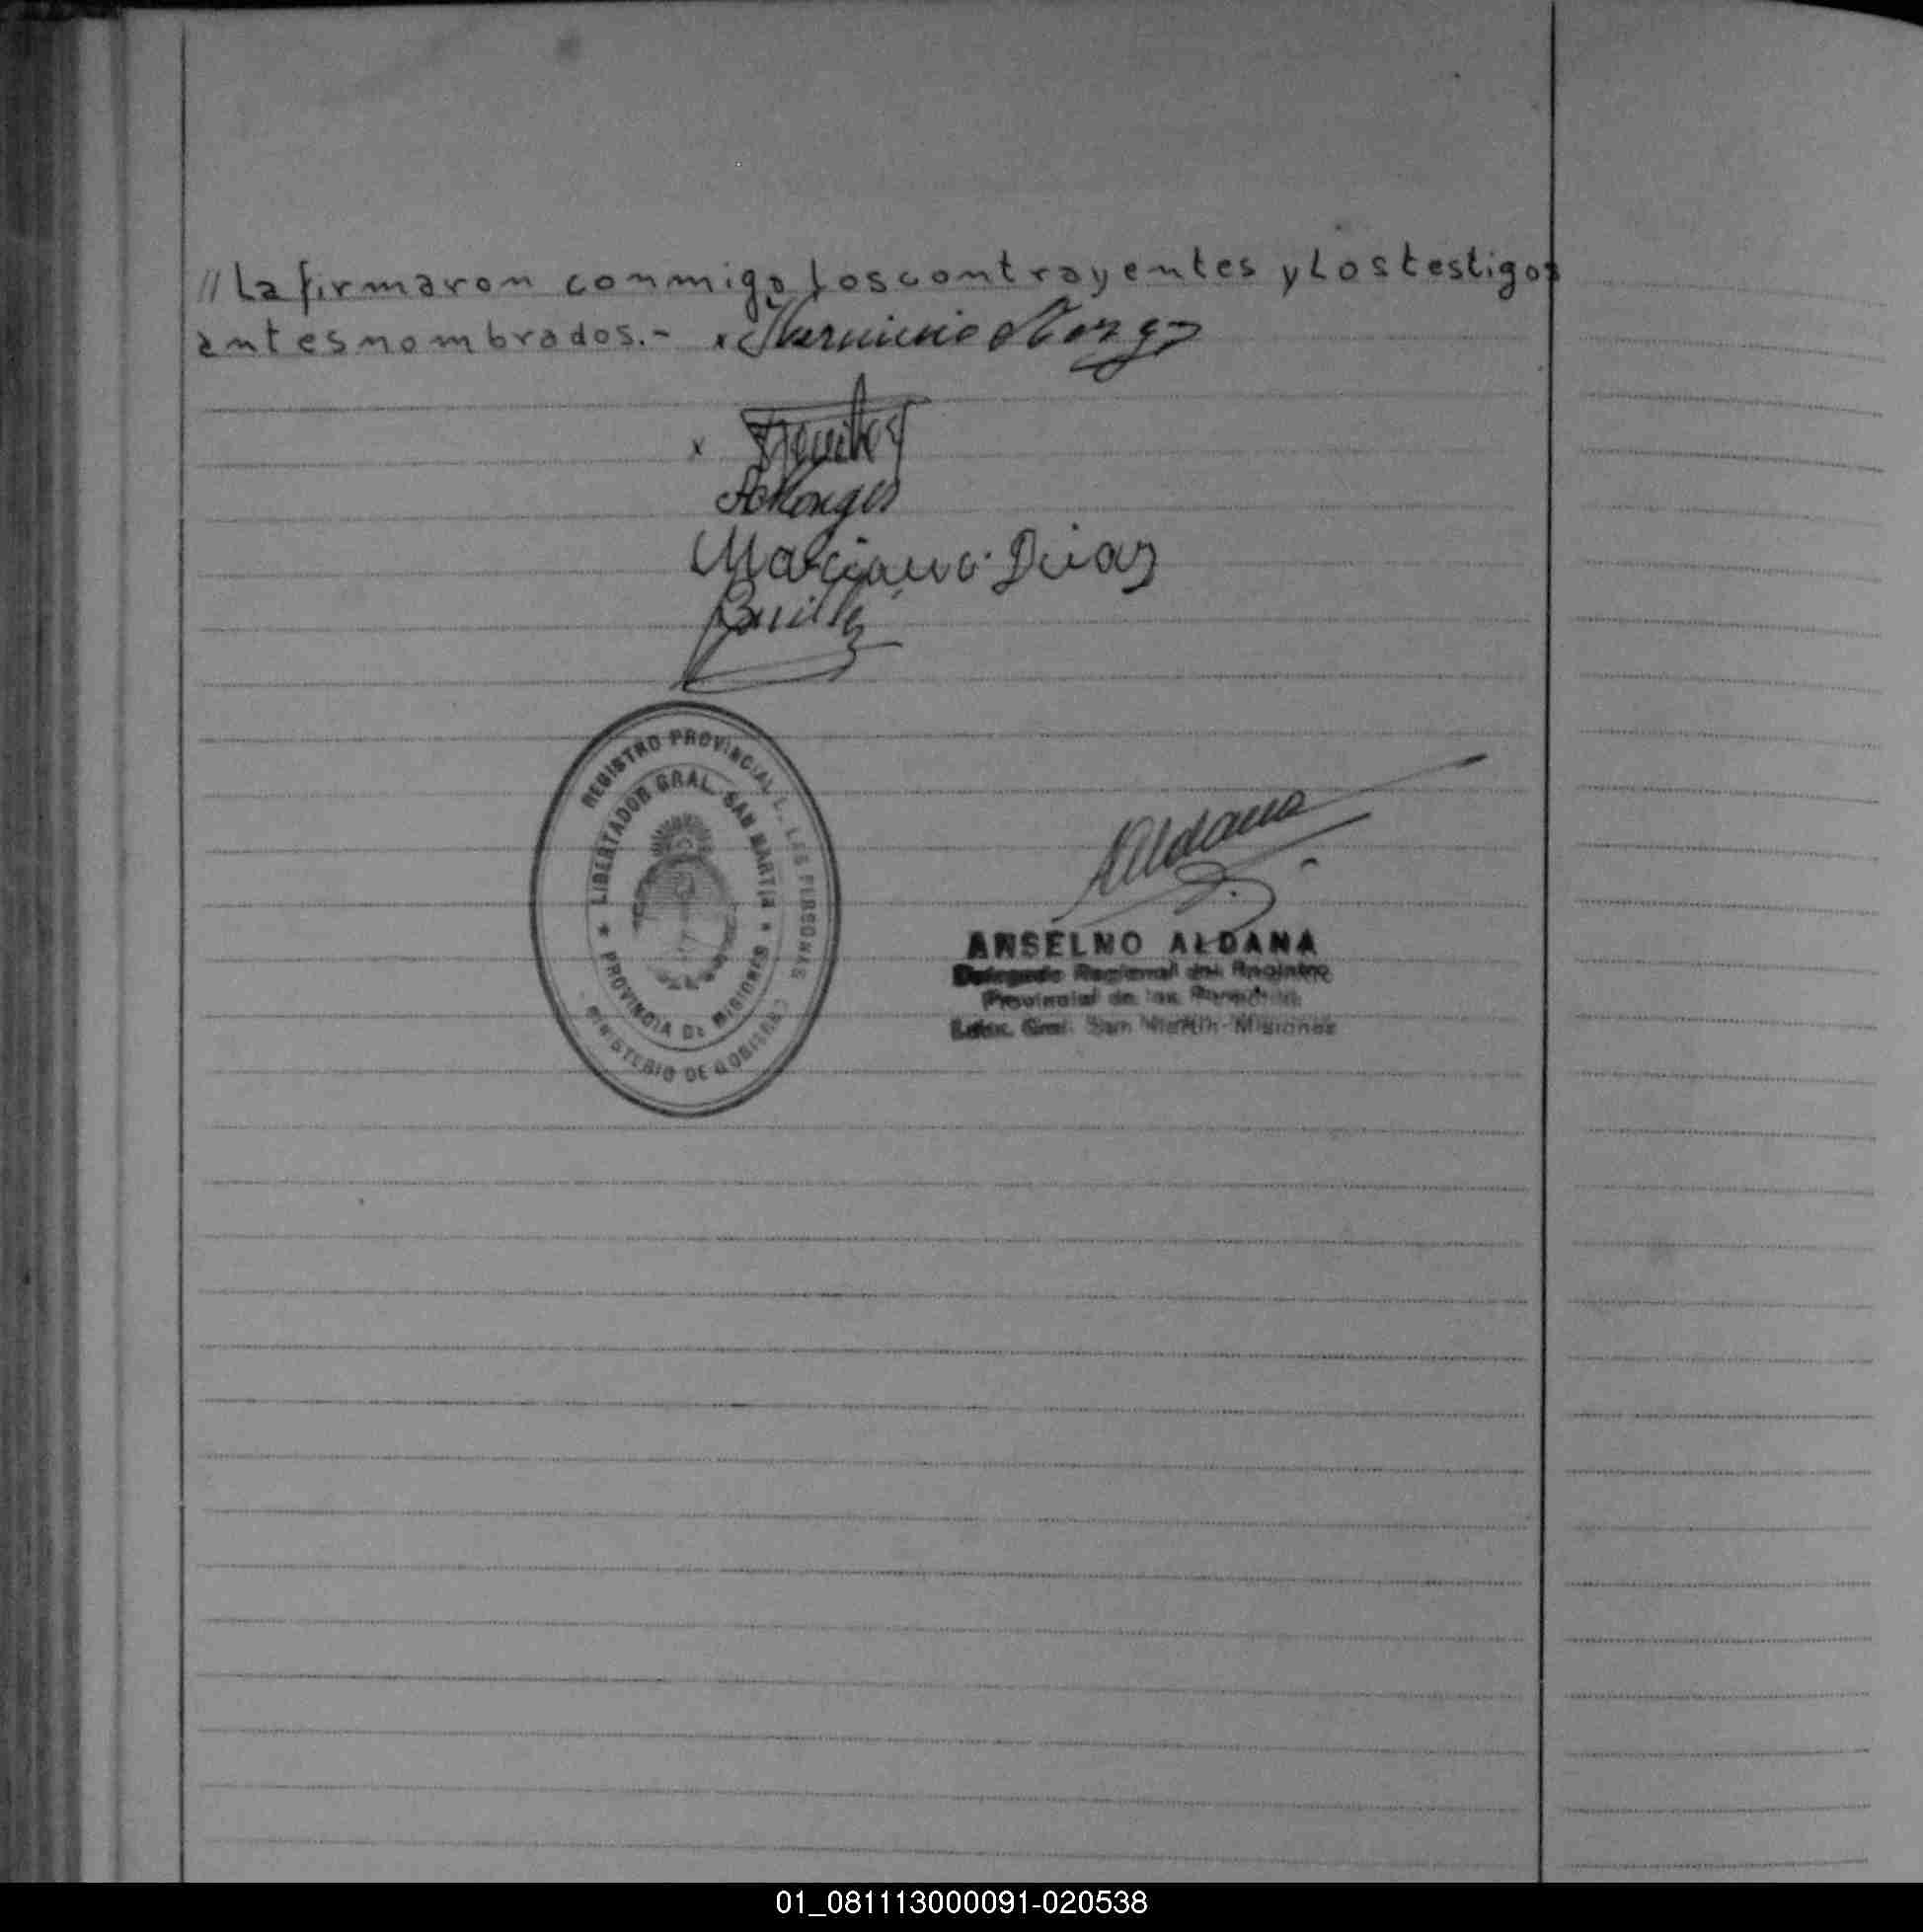 // La firmaron conmigo los contrayentes y Los testigos
antes nombrados.- x
x
Marciano Diaz
REGISTRO PROVINCIAL LAS PERSONAS
LIBERTADOR GRAL. SAN MARTIN
PROVINCIA DE MISIONES
MINISTERIO DE GOBIERNO
Aldana
ANSELMO ALDANA
Delegado Regional del Registro
Provincial de las Personas
Gral. San Martín-Misiones
01_081113000091-020538